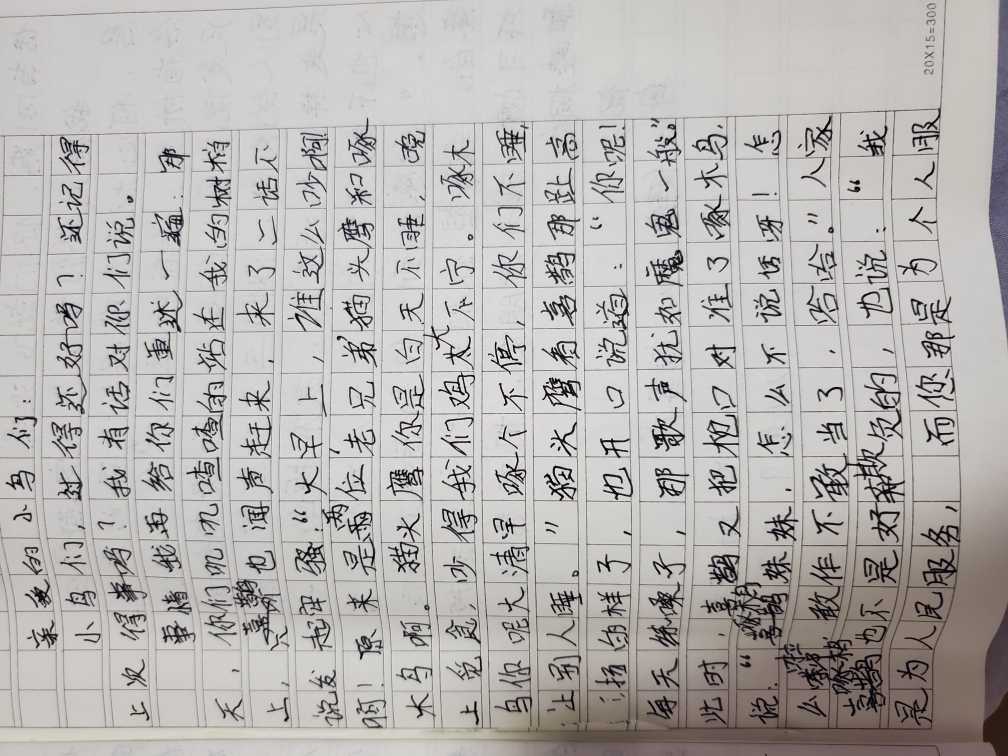 亲爱的小鸟们：
小鸟们，过得还好吗？还记得
上次得事吗？我有话对你们说。
事情我再给你们重述一遍：那
天，你们叽叽喳喳的站在我的树梢
上，喜鹊也闻声赶来，来了二话不
说发起牢骚：“大早上，谁这么吵啊！
啊！原来是两位老兄弟猫头鹰和啄
木鸟啊。猫头鹰你是白天不睡，晚
上觅食，吵得我们鸡犬不宁。啄木
鸟你呢大清早啄个不停，你们不睡，
让别人睡。”猫头鹰看喜鹊那趾高
气扬的样子，也开口说道：“你呢！
每天练嗓子，那歌声犹如魔鬼一般。”
此时，喜鹊又把枪口对准了啄木鸟，
说：“喜鹊妹妹，怎么不说话呀！怎
么，敢作不敢当了，哈哈。”人家
啄木鸟也不是好欺负的，也说：“我
是为人民服务，而您那是为个人服
20X15=300